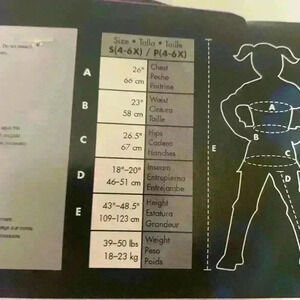 Do not bleach
Size • Talla • Taille
S(4-6X) / P(4-6X)
A
26"
66 cm
Chest
Pecho
Poitrine
B
23"
58 cm
Waist
Cintura
Taille
C
26.5"
67 cm
Hips
Cadera
Hanches
D
18"–20"
46–51 cm
Inseam
Entrepierna
Entrejambe
E
43"–48.5"
109–123 cm
Height
Estatura
Grandeur
39–50 lbs
18–23 kg
Weight
Peso
Poids
A
B
C
D
E